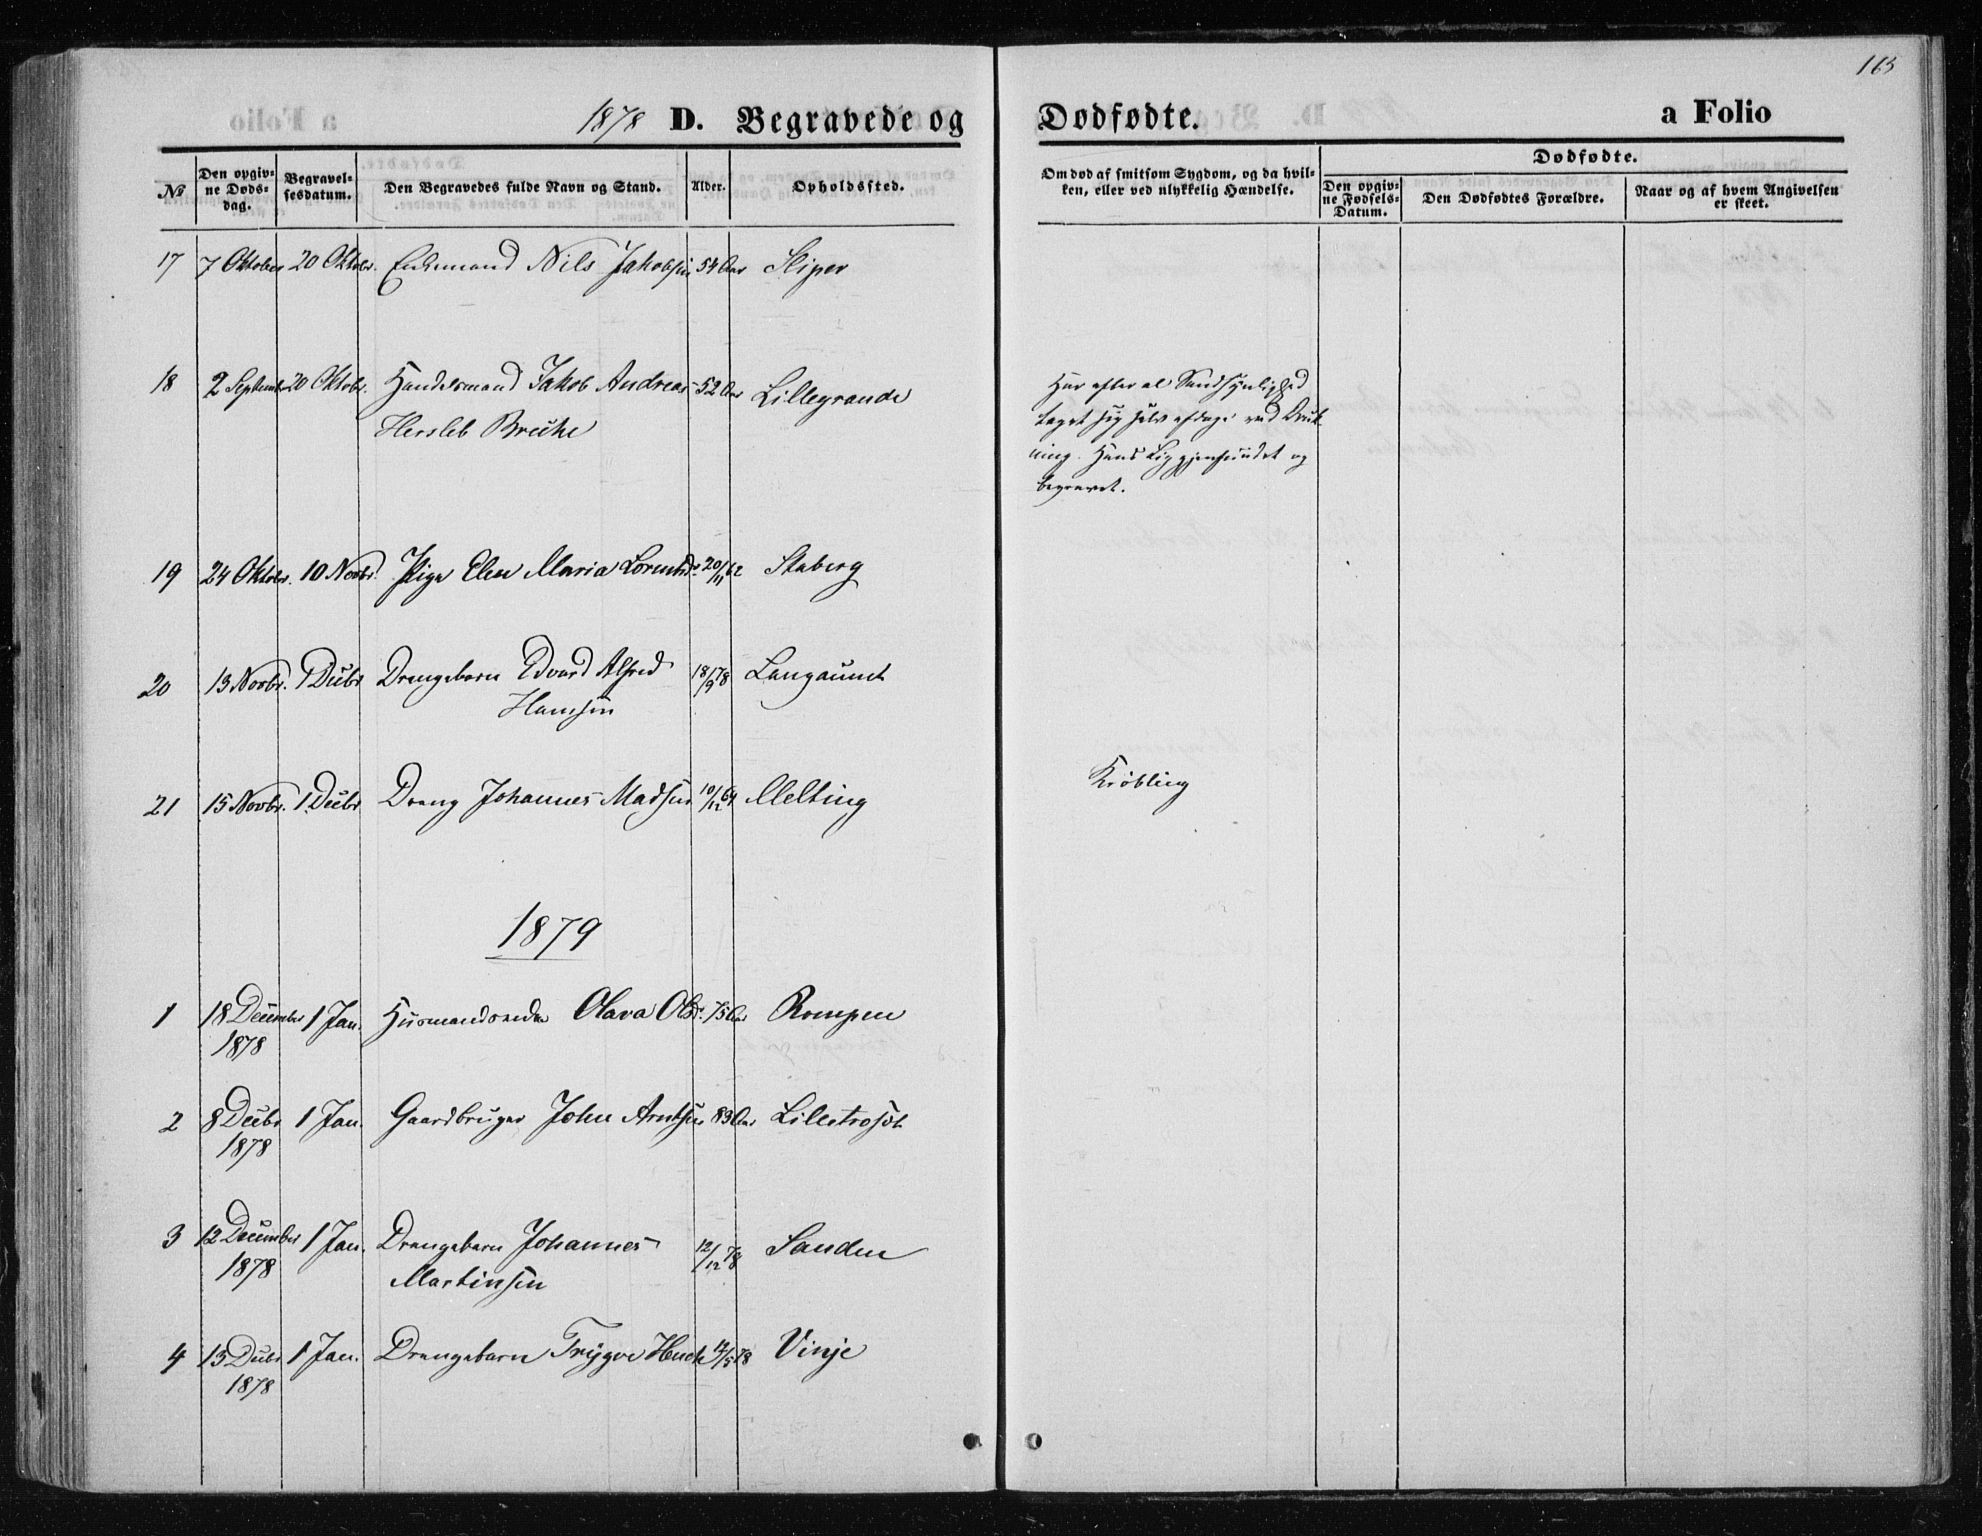 163
1878 D. Begravede og Dødfødte. a Folio
No
Den opgivne Døds-dag.
Begravelsesdatum.
Den Begravedes fulde Navn og Stand.
Alder.
Opholdssted.
Om død af smitsom Sygdom, og da hvilken, eller ved ulykkelig Hændelse.
Dødfødte.
Den opgivne Fødsels-Datum.
Den Dødfødtes Forældre.
Naar og af hvem Angivelsen er skeet.
17 7 Oktober 20 Oktobr. Nils Jakobsen 54 Aar Sliper
18 2 Septembr 20 Oktobr. Handelsmand Jakob Andreas 52 Aar Lillegrande
Hersleb Breche
Har efter al Sandsynlighed
taget sig selv afdage ved Druk-
ning. Hans Lig gjenfundet og
begravet.
19 24 Oktobr. 10 Novbr. Pige Elen Maria Lorentsdr. 20/11 62 Staberg
20 13 Novbr. 1 Decbr Drengebarn Edvard Alfred 18/9 78 Langaunet
Hansen
21 15 Novbr. 1. Decbr Dreng Johannes Madsen 10/12 64 Melting
Krøbling
1879
1 18 December 1 Jan. Husmandsenke Olava Olsdr. 75 Aar Rompen
1878
2 8 Decbr 1 Jan. Gaardbruger John Arntsen 83 Aar Lilletrosøt
1878
3 12 December 1 Jan. Drengebarn Johannes 12/12 78 Sanden
1878 Martinsen
4 13 Decbr 1 Jan. Drengebarn Trygve Huch /5 78 Vinje
1878